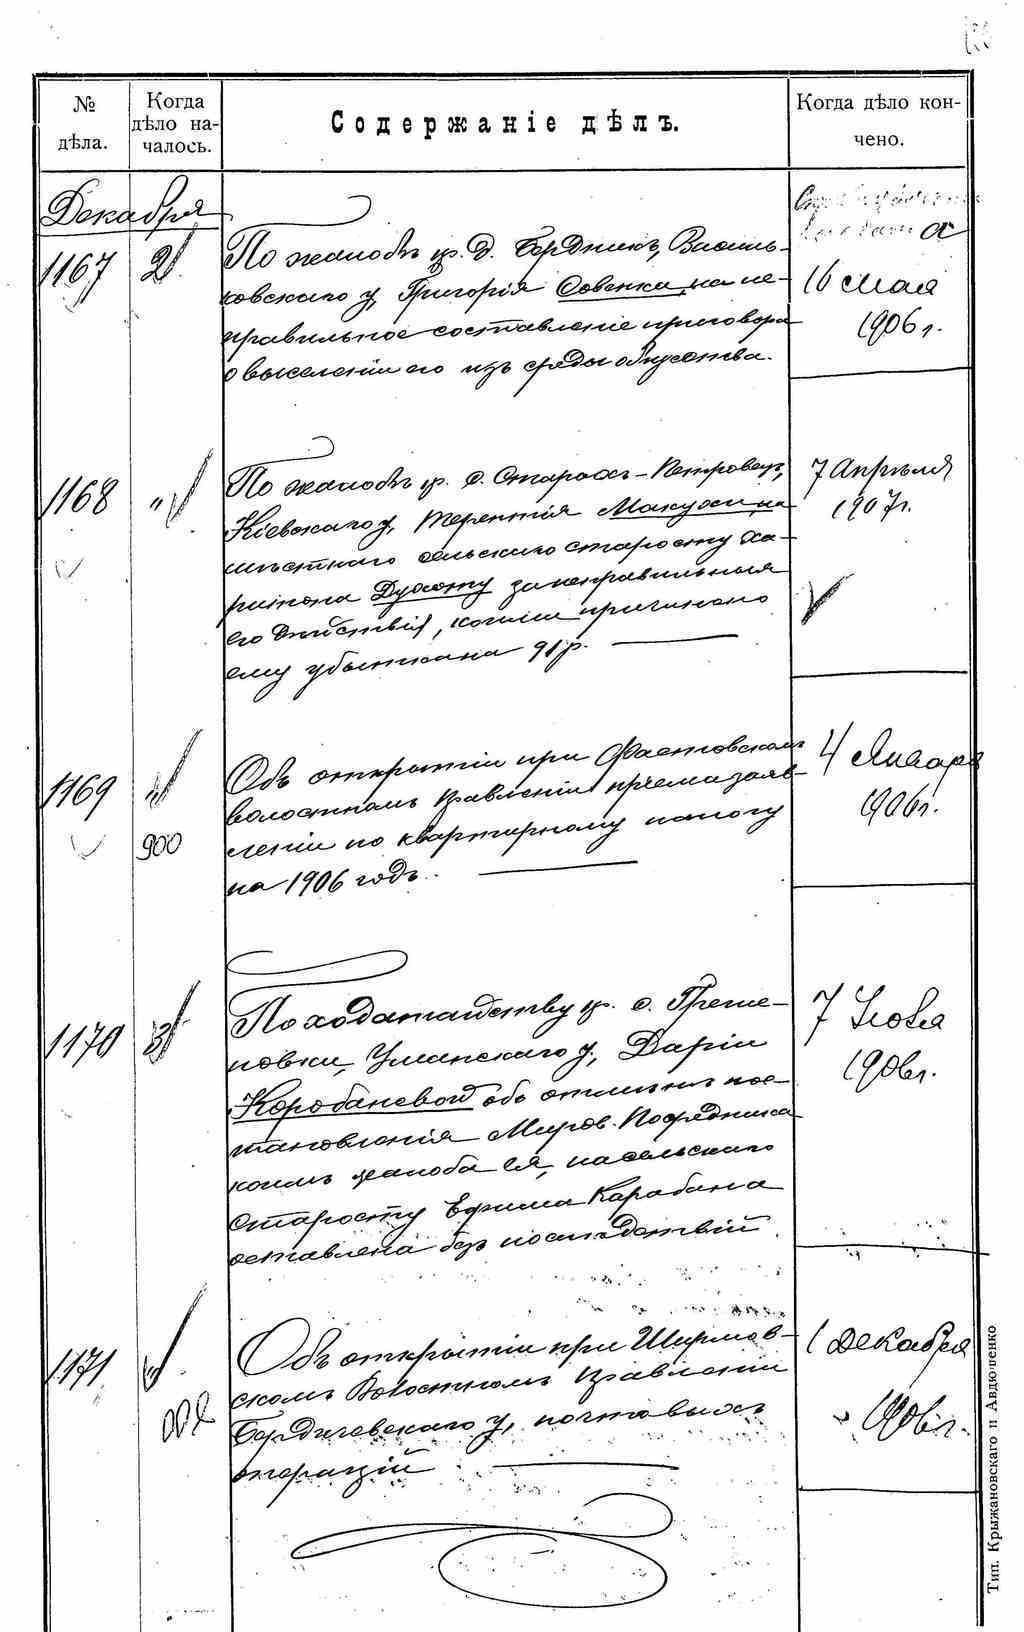 №
дѣла.
Когда
дѣло на-
чалось.
Содержаніе дѣлъ.
Когда дѣло кон-
чено.
Декабря
1167
2
По жалобѣ кр. д. Бердник, Василь-
ковскаго у, Григорія Совенка, на не-
правильное составленіе приговора
о выселеніи его изъ среды общества.
16 Мая
1906 г.
1168
"
По жалобѣ кр. с. Старыхъ-Петровецъ,
Кіевскаго у, Терентія на
мѣстнаго сельскаго старосту Ха-
ритона за неправильныя
его дѣйствія, коими причинено
ему убытка на 91 р.
7 Апрѣля
1907 г.
1169
"
900
Объ открытіи при Фастовскомъ
волостномъ правленіи пріема заяв-
леній по квартирному налогу
на 1906 годъ.
4 Января
1906 г.
1170
3
По ходатайству кр. с.
Уманскаго у, Даріи
Коробаневой объ отмѣнѣ пос-
тановленія Миров. Посредника
коимъ жалоба ея, на сельскаго
старосту Ефима Карабана
оставлена безъ послѣдствій
7
1906 г.
1171
Объ открытіи при Ширмов-
скомъ Волостномъ правленіи
Бердичевскаго у, почтовыхъ
операцій
1 Декабря
1906 г.
Тип. Крыжановскаго и Авдюшенко